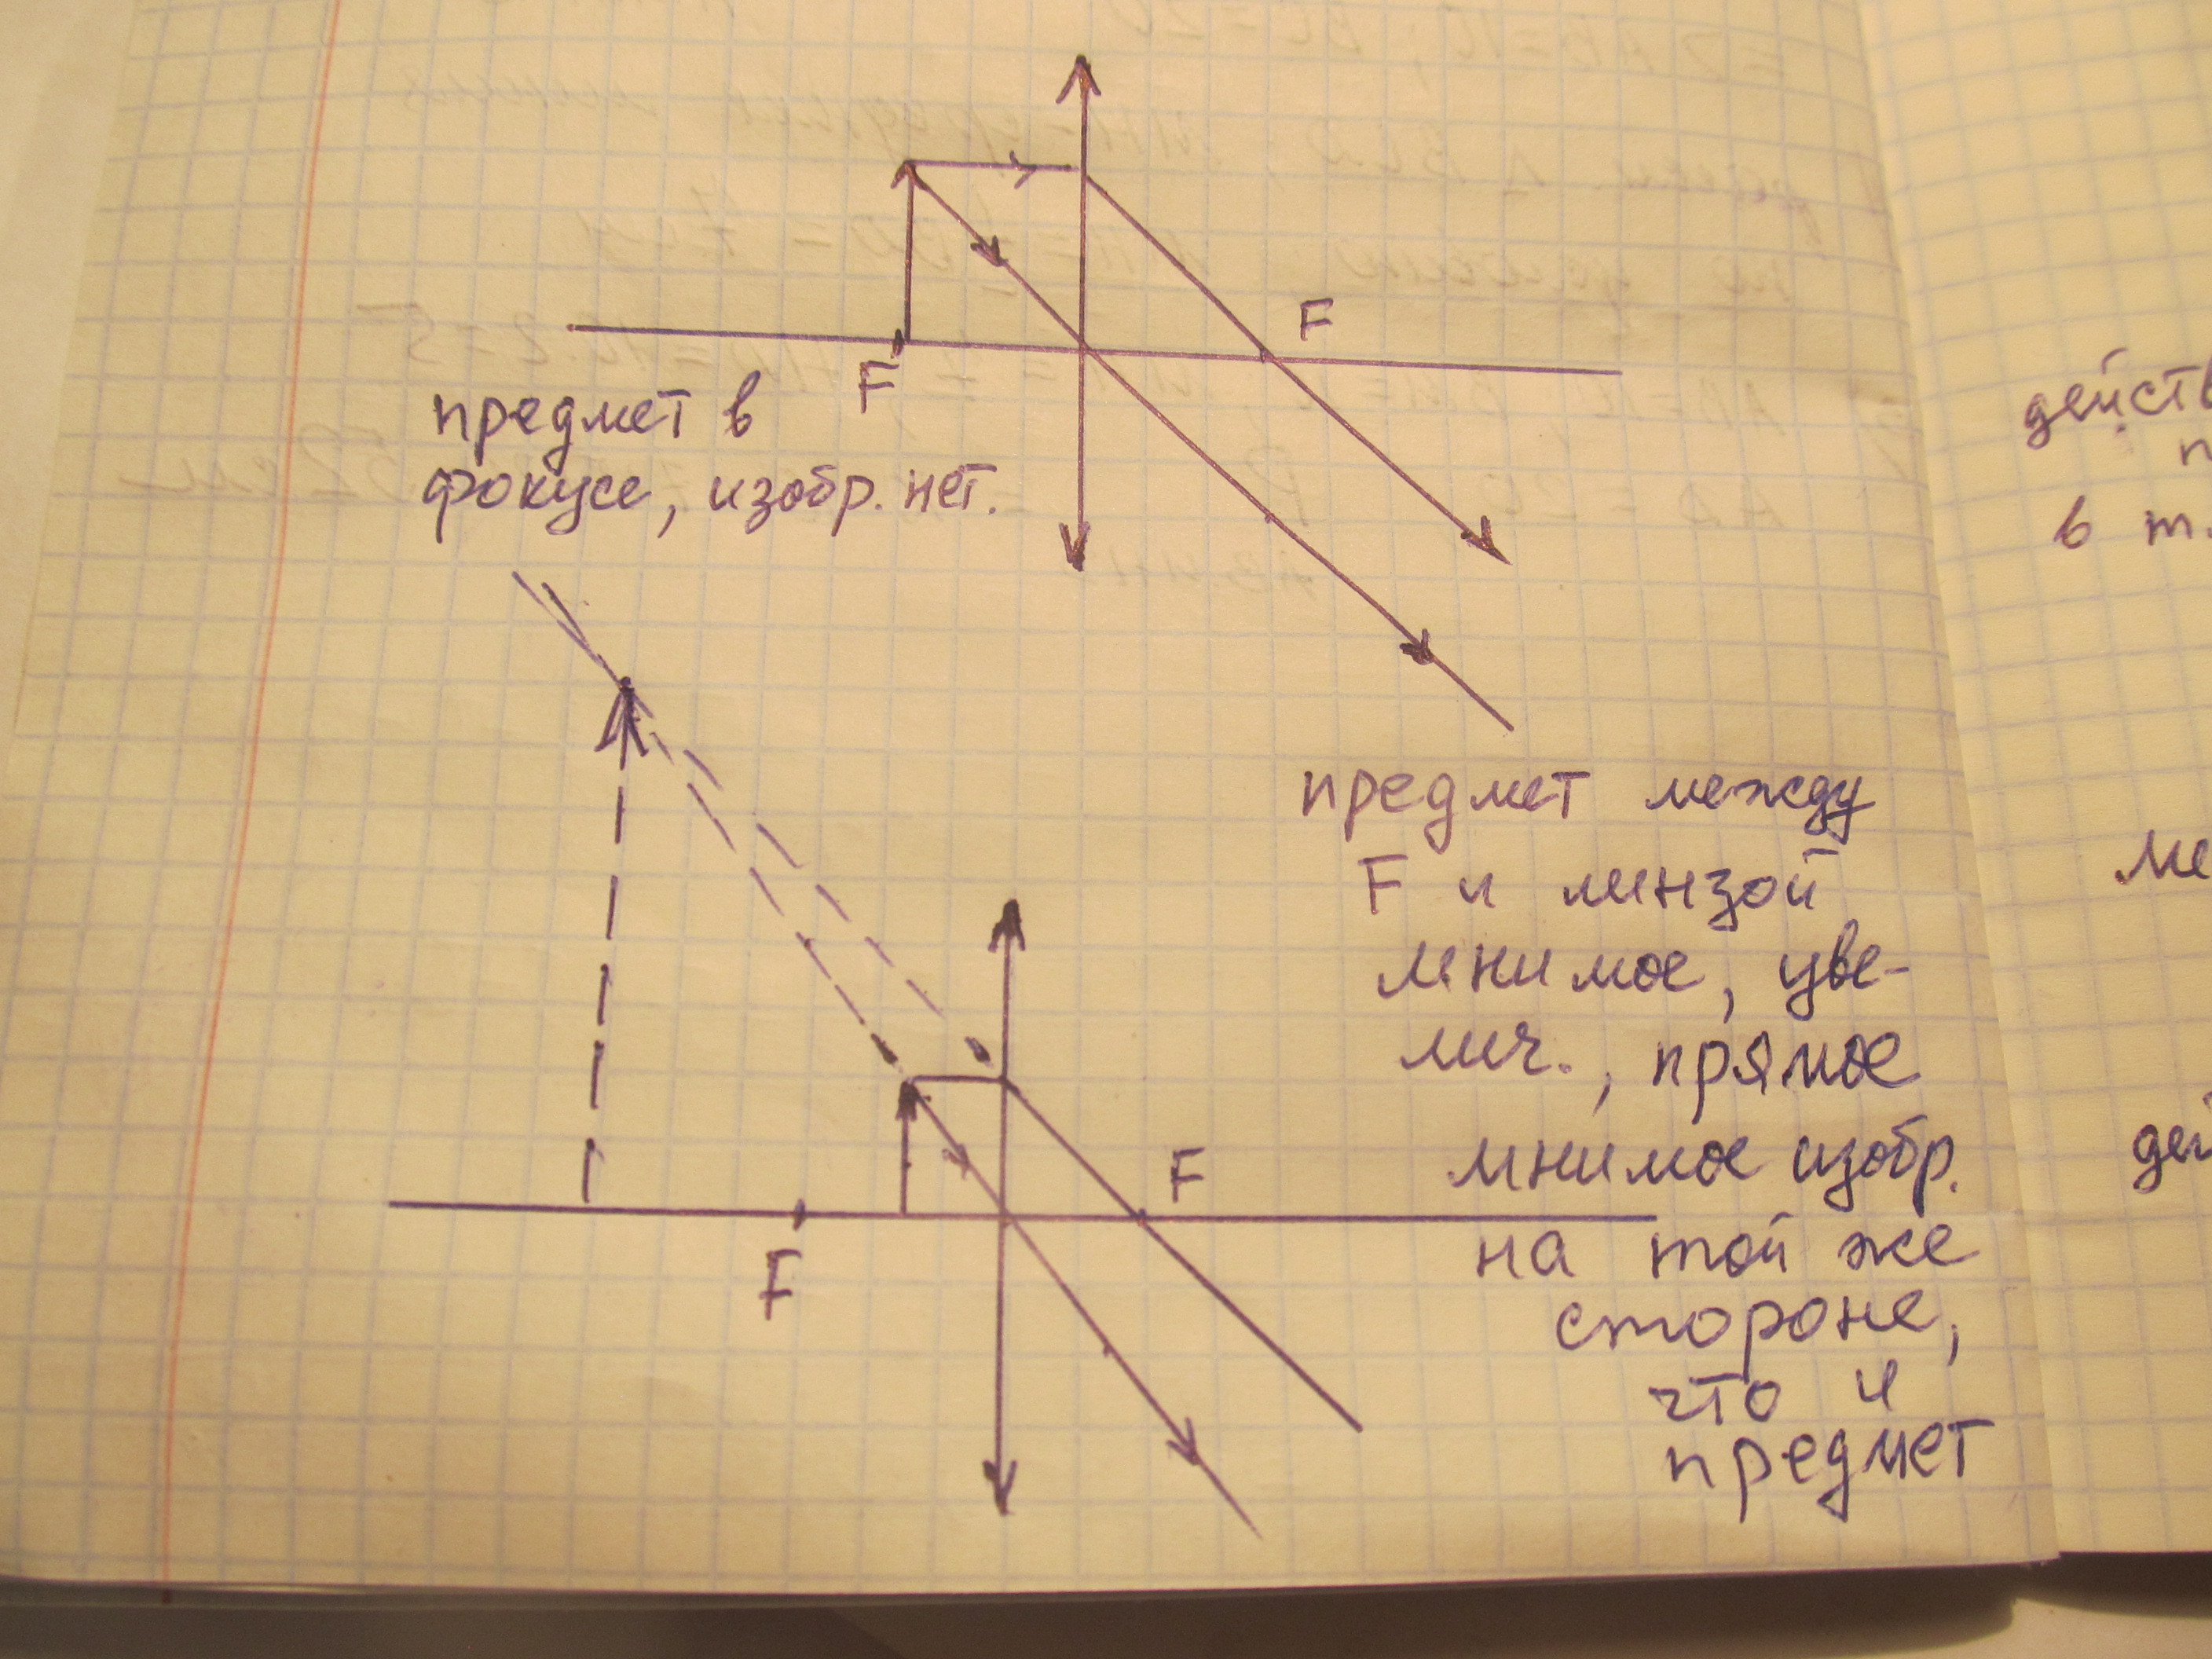 F
F
предмет в
фокусе, изобр. нет.
предмет между
F и линзой
мнимое, уве-
лич., прямое
мнимое изобр.
F
на той же
F
стороне,
что и
предмет
действ
в т.